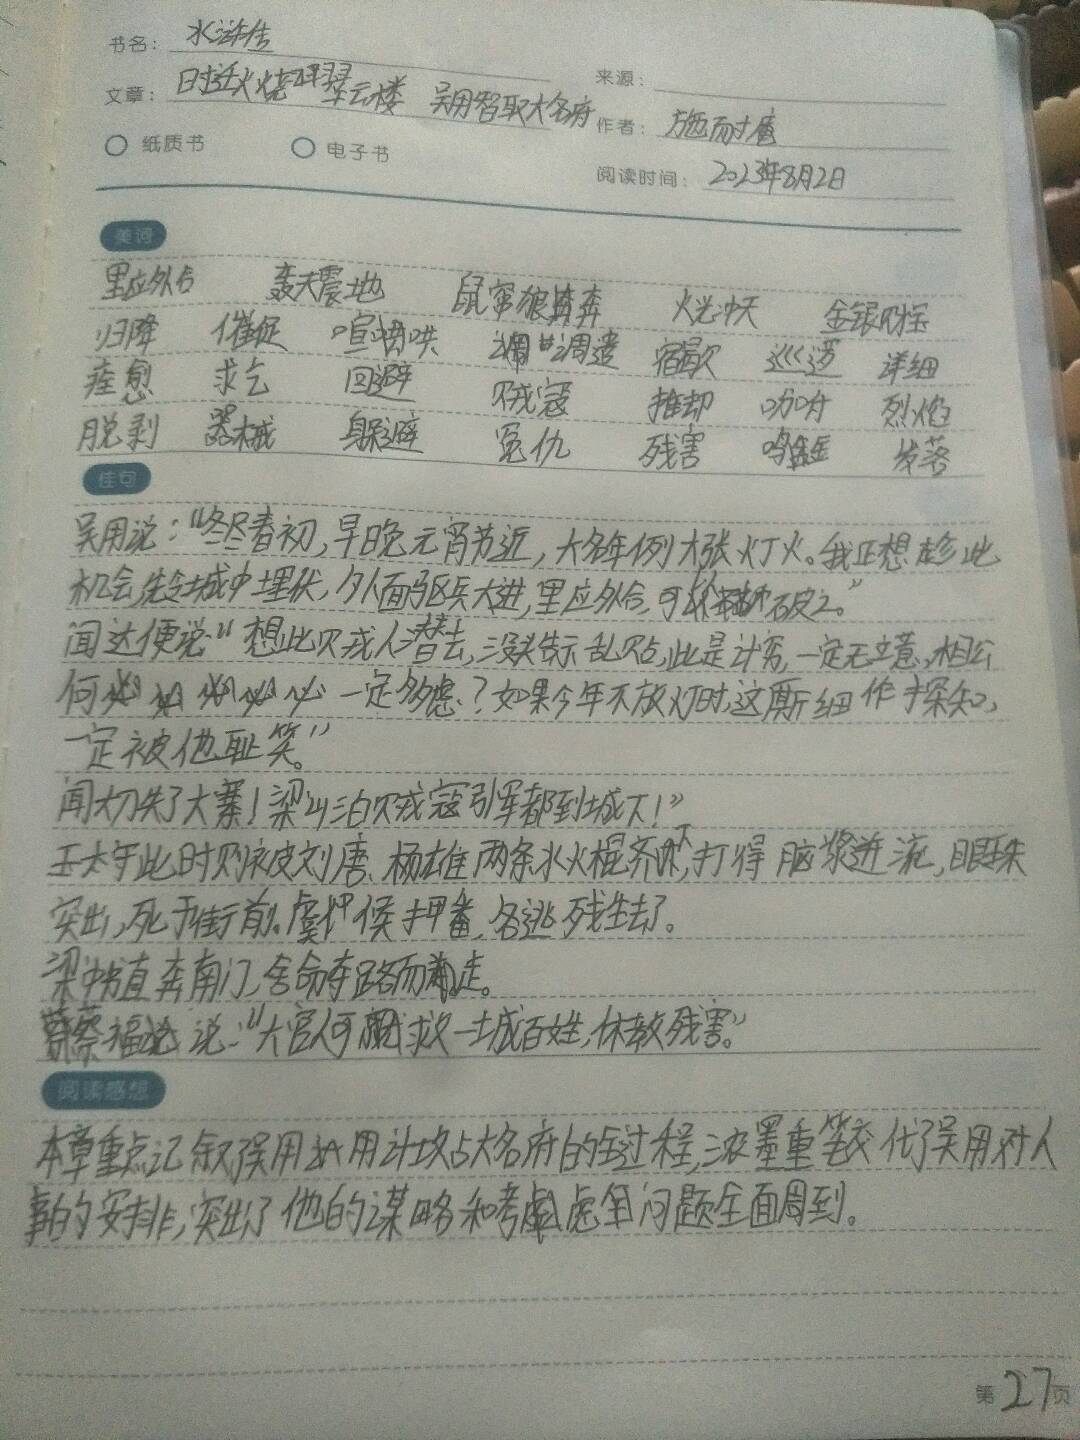 书名： 水浒传
来源：
文章： 时迁火烧翠云楼 吴用智取大名府
作者： 施耐庵
纸质书 电子书
阅读时间： 2023年8月2日
美词
里应外合 轰天震地 鼠窜狼奔 火光冲天 金银财宝
归降 催促 喧哄 调遣 宿歇 巡逻 详细
痊愈 求乞 回避 贼寇 推却 吩咐 烈焰
脱剥 器械 躲避 冤仇 残害 鸣金 发落
佳句
吴用说：“冬尽春初，早晚元宵节近，大名年例大张灯火。我正想趁此
机会，先令城中埋伏，外面驱兵大进，里应外合，可以破之。”
闻达便说“想此贼人潜去，没头告示乱贴，此是计穷，一定无主意，相公
何 一定多虑？如果今年不放灯时，这厮细作探知，
一定被他耻笑。”
闻大刀失了大寨！梁山泊贼寇引军都到城下！”
王太守此时则被刘唐、杨雄两条水火棍齐下，打得脑浆迸流，眼珠
突出，死于街前。虞候押番，各逃残生去了。
梁中书直奔南门，舍命夺路而走。
蔡福说：“大官人可救一城百姓，休教残害。”
阅读感想
本章重点记叙了吴用用计攻占大名府的全过程，浓墨重笔交代了吴用对人
事的安排，突出了他的谋略和考虑问题全面周到。
第27页